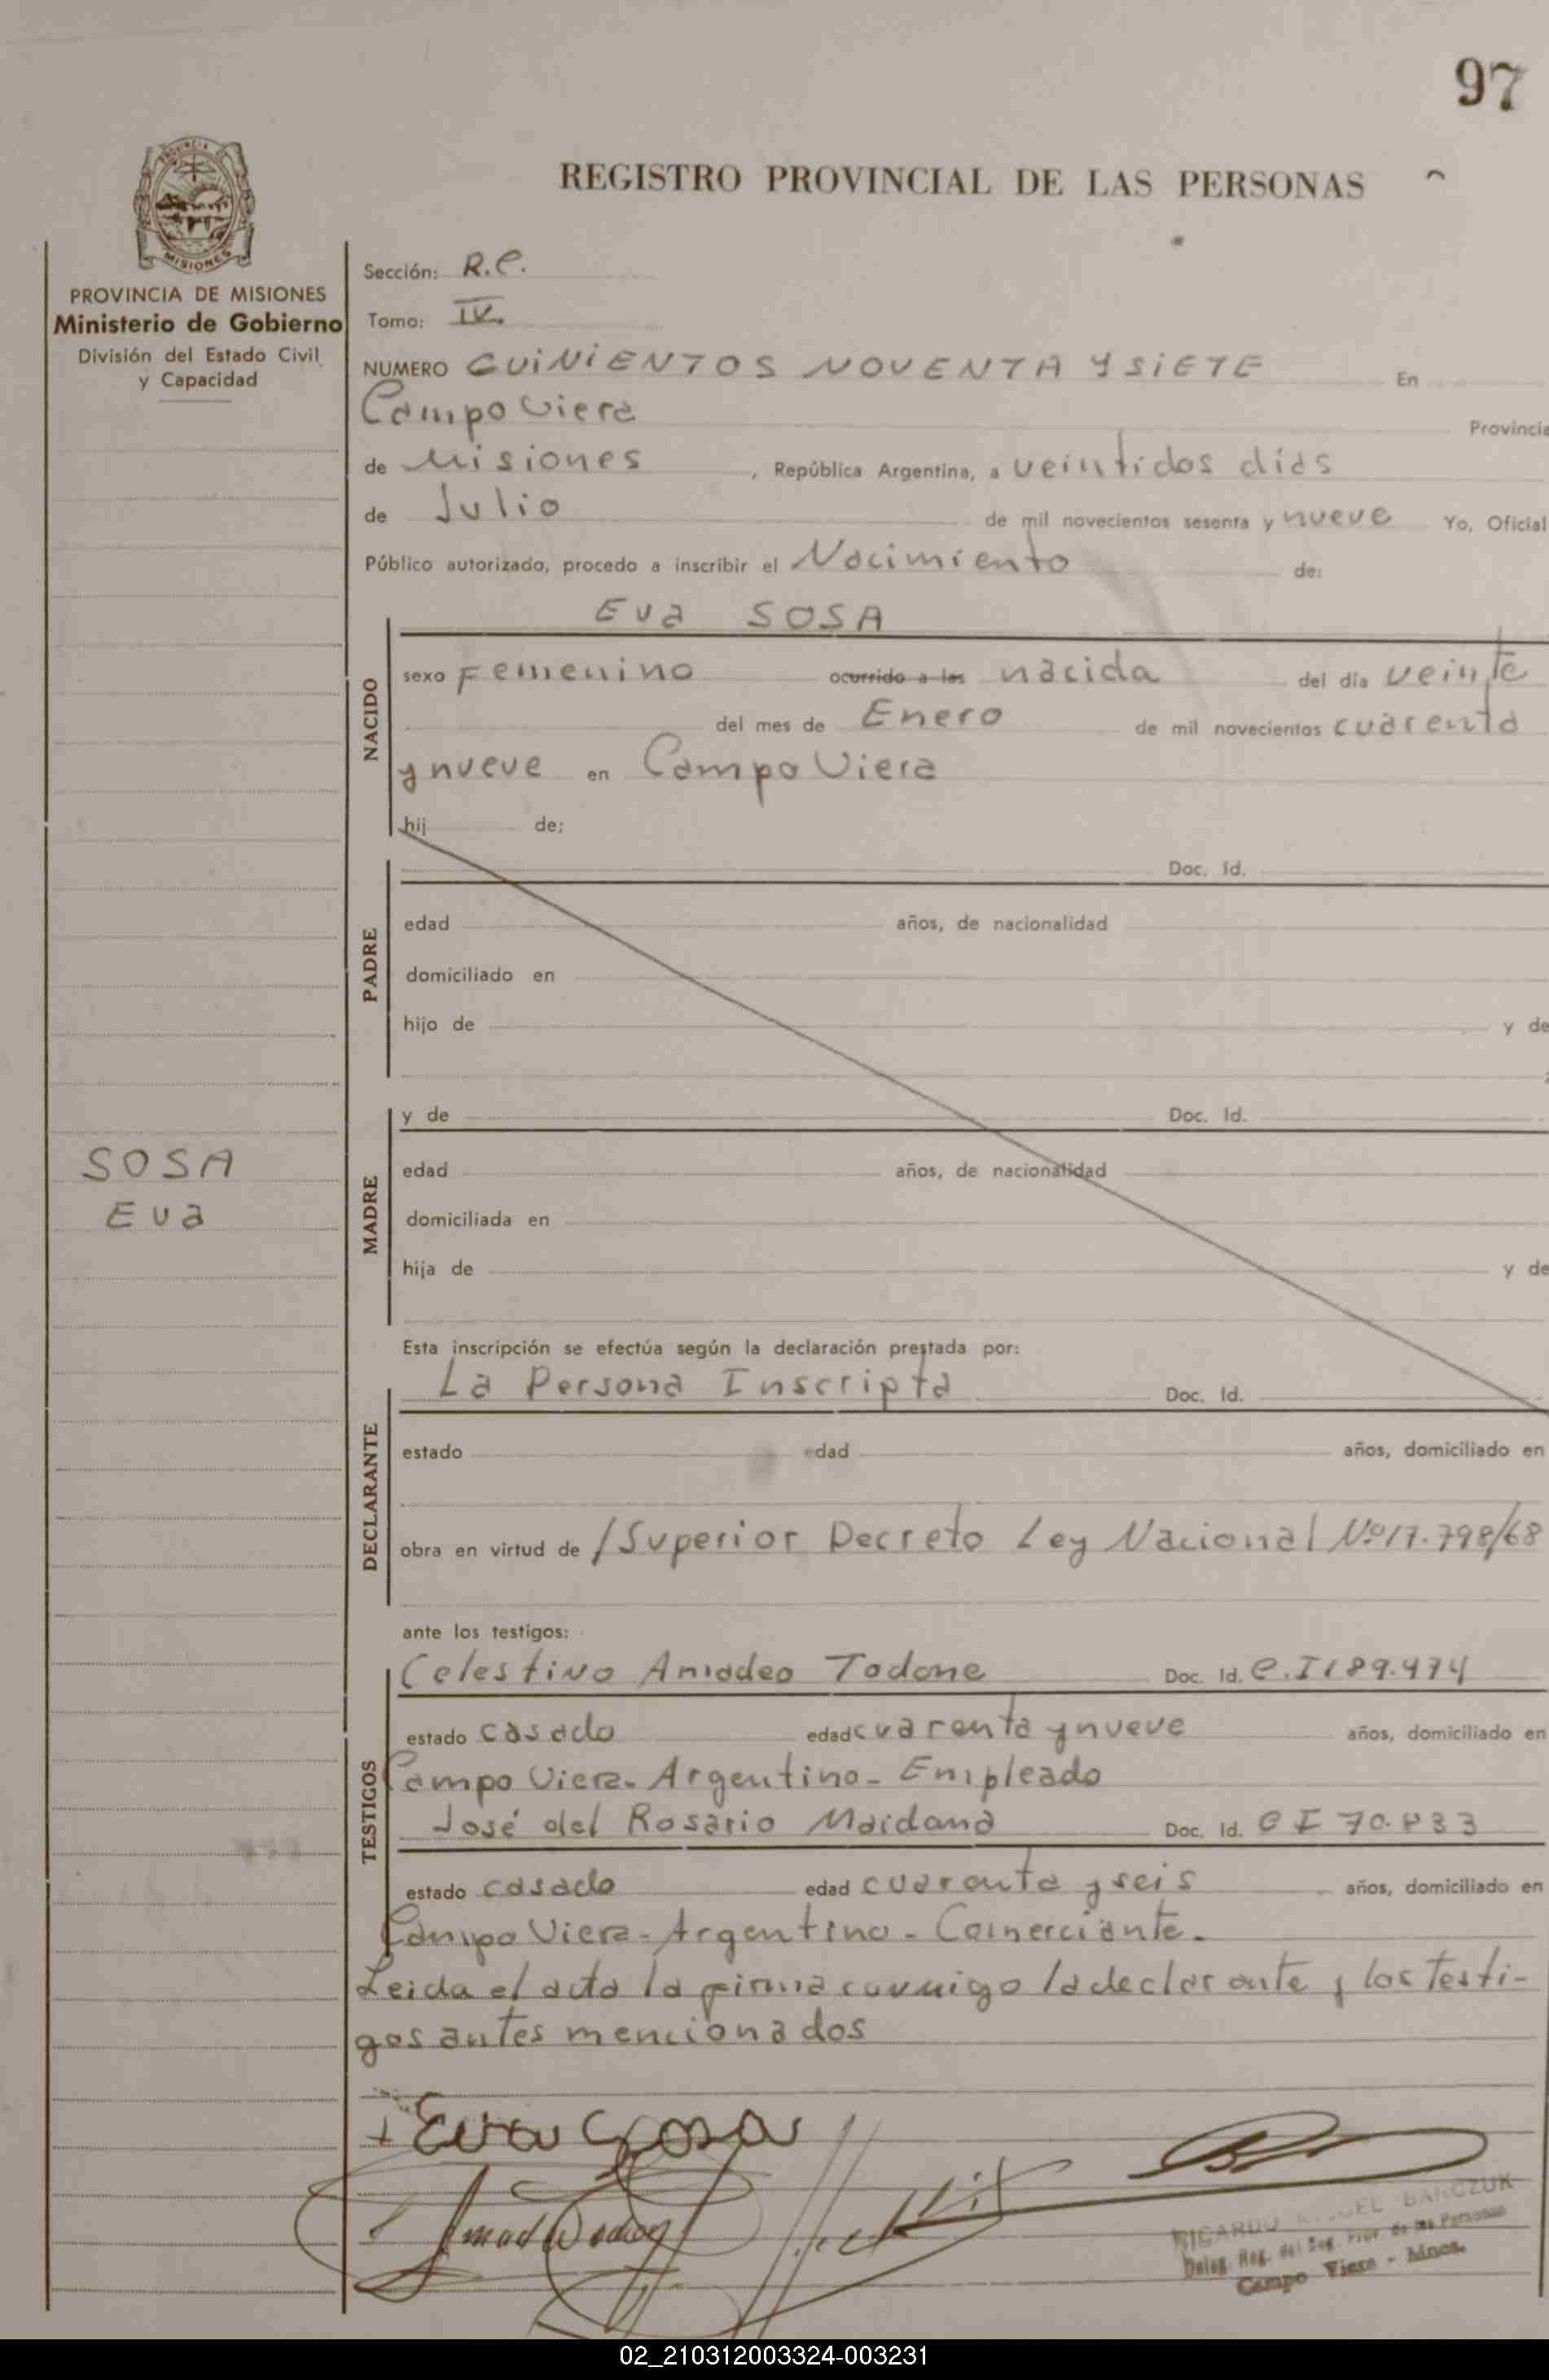 97
REGISTRO PROVINCIAL DE LAS PERSONAS
PROVINCIA DE MISIONES
Ministerio de Gobierno
División del Estado Civil
y Capacidad
Sección: R.C.
Tomo: IV.
NUMERO QUINIENTOS NOVENTA Y SiETE En
Campo Viera Provincia
de Misiones , República Argentina, a veintidos dias
de Julio de mil novecientos sesenta y nueve Yo, Oficial
Público autorizado, procedo a inscribir el Nacimiento de:
NACIDO
Eva SOSA
sexo Femenino ocurrido a las nacida del día veinte
del mes de Enero de mil novecientos cuarenta
y nueve en Campo Viera
hij de;
PADRE
Doc. Id.
edad años, de nacionalidad
domiciliado en
hijo de y de
MADRE
y de Doc. Id.
edad años, de nacionalidad
domiciliada en
hija de y de
SOSA
Eva
Esta inscripción se efectúa según la declaración prestada por:
DECLARANTE
La Persona Inscripta Doc. Id.
estado edad años, domiciliado en
obra en virtud de /Superior Decreto Ley Nacional Nº 17.798/68
ante los testigos:
TESTIGOS
Celestino Amadeo Todone Doc. Id. C.I 189.474
estado casado edad cuarenta y nueve años, domiciliado en
Campo Viera. Argentino - Empleado
José del Rosario Maidana Doc. Id. CI 70.833
estado casado edad cuarenta y seis años, domiciliado en
Campo Viera - Argentino - Comerciante.
Leida el acta la firma conmigo la declarante y los testi-
gos antes mencionados
Eva Sosa
RICARDO BANCZUK
Deleg. Reg. del Reg. Prov. de las Personas
Campo Viera - Mnes.
02_210312003324-003231